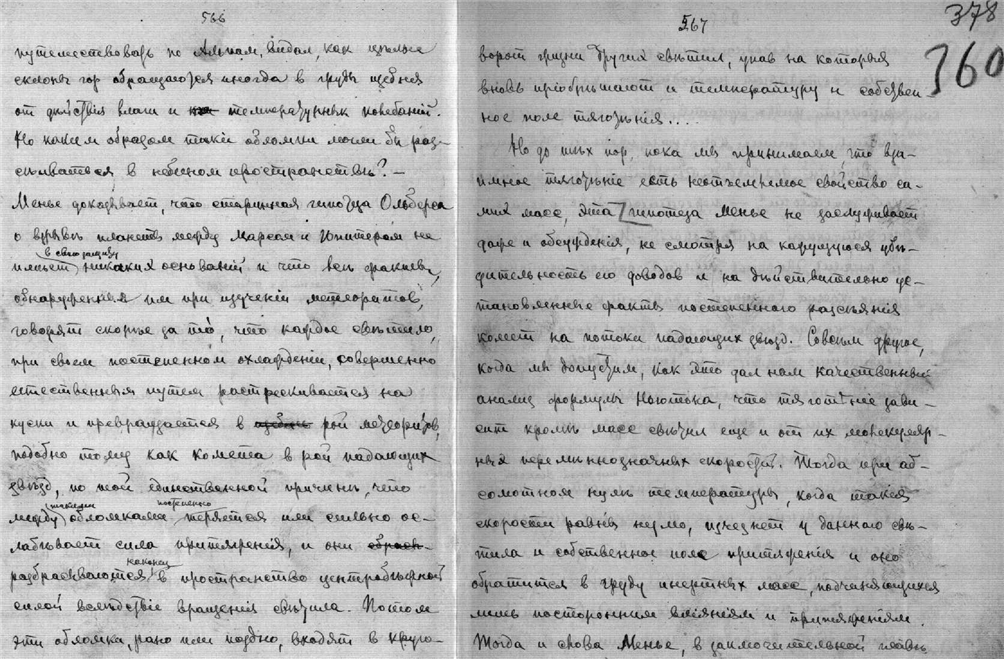 566
путешествовать по Альпам, видал, как цѣлые
склоны гор обращаются иногда в груды щебня
от дѣйствія влаги и температурных колебаній.
Но каким образом такіе обломки могли бы раз-
сыпаться в небесном пространствѣ? —
Менье доказывает, что старинная гипотеза Ольберса
о взрывѣ планеты между Марсом и Юпитером не
имѣет в свою защиту никаких основаній и что всѣ факты,
обнаруженные им при изученіи метеоритов,
говорят скорѣе за то, что каждое свѣтило,
при своем постепенном охлажденіи, совершенно
естественным путем растрескивается на
куски и превращается в рой метеоритов,
подобно тому как комета в рой падающих
звѣзд, по той единственной причинѣ, что
между такими обломками постепенно теряется или сильно ос-
лабѣвает сила притяженія, и они
разбрасываются наконец в пространство центробѣжной
силой вслѣдствіе вращенія свѣтила. Потом
эти обломки, рано или поздно, входят в круго-
567
378
360
ворот жизни других свѣтил, упав на которыя
вновь пріобрѣтают и температуру и собствен
ное поле тяготѣнія....
Но до тѣх пор, пока мы принимаем, что вза-
имное тяготѣніе есть неотъемлемое свойство са-
мих масс, эта гипотеза Менье не заслуживает
даже и обсужденія, не смотря на кажущуюся убѣ-
дительность его доводов и на дѣйствительно ус-
тановленные факты постепеннаго разсѣянія
комет на потоки падающих звѣзд. Совсѣм другое,
когда мы допустим, как это дал нам качественный
анализ формулы Ньютона, что тяготѣніе зави-
сит кромѣ масс свѣтил еще и от их молекуляр-
ных перемѣннозначных скоростей. Тогда при аб-
солютном нулѣ температуры, когда такія
скорости равны нулю, изчезнет у даннаго свѣ-
тила и собственное поле притяженія и оно
обратится в груду инертных масс, подчиняющихся
лишь посторонним вліяніям и притяженіям.
Тогда и слова Менье, в заключительной главѣ